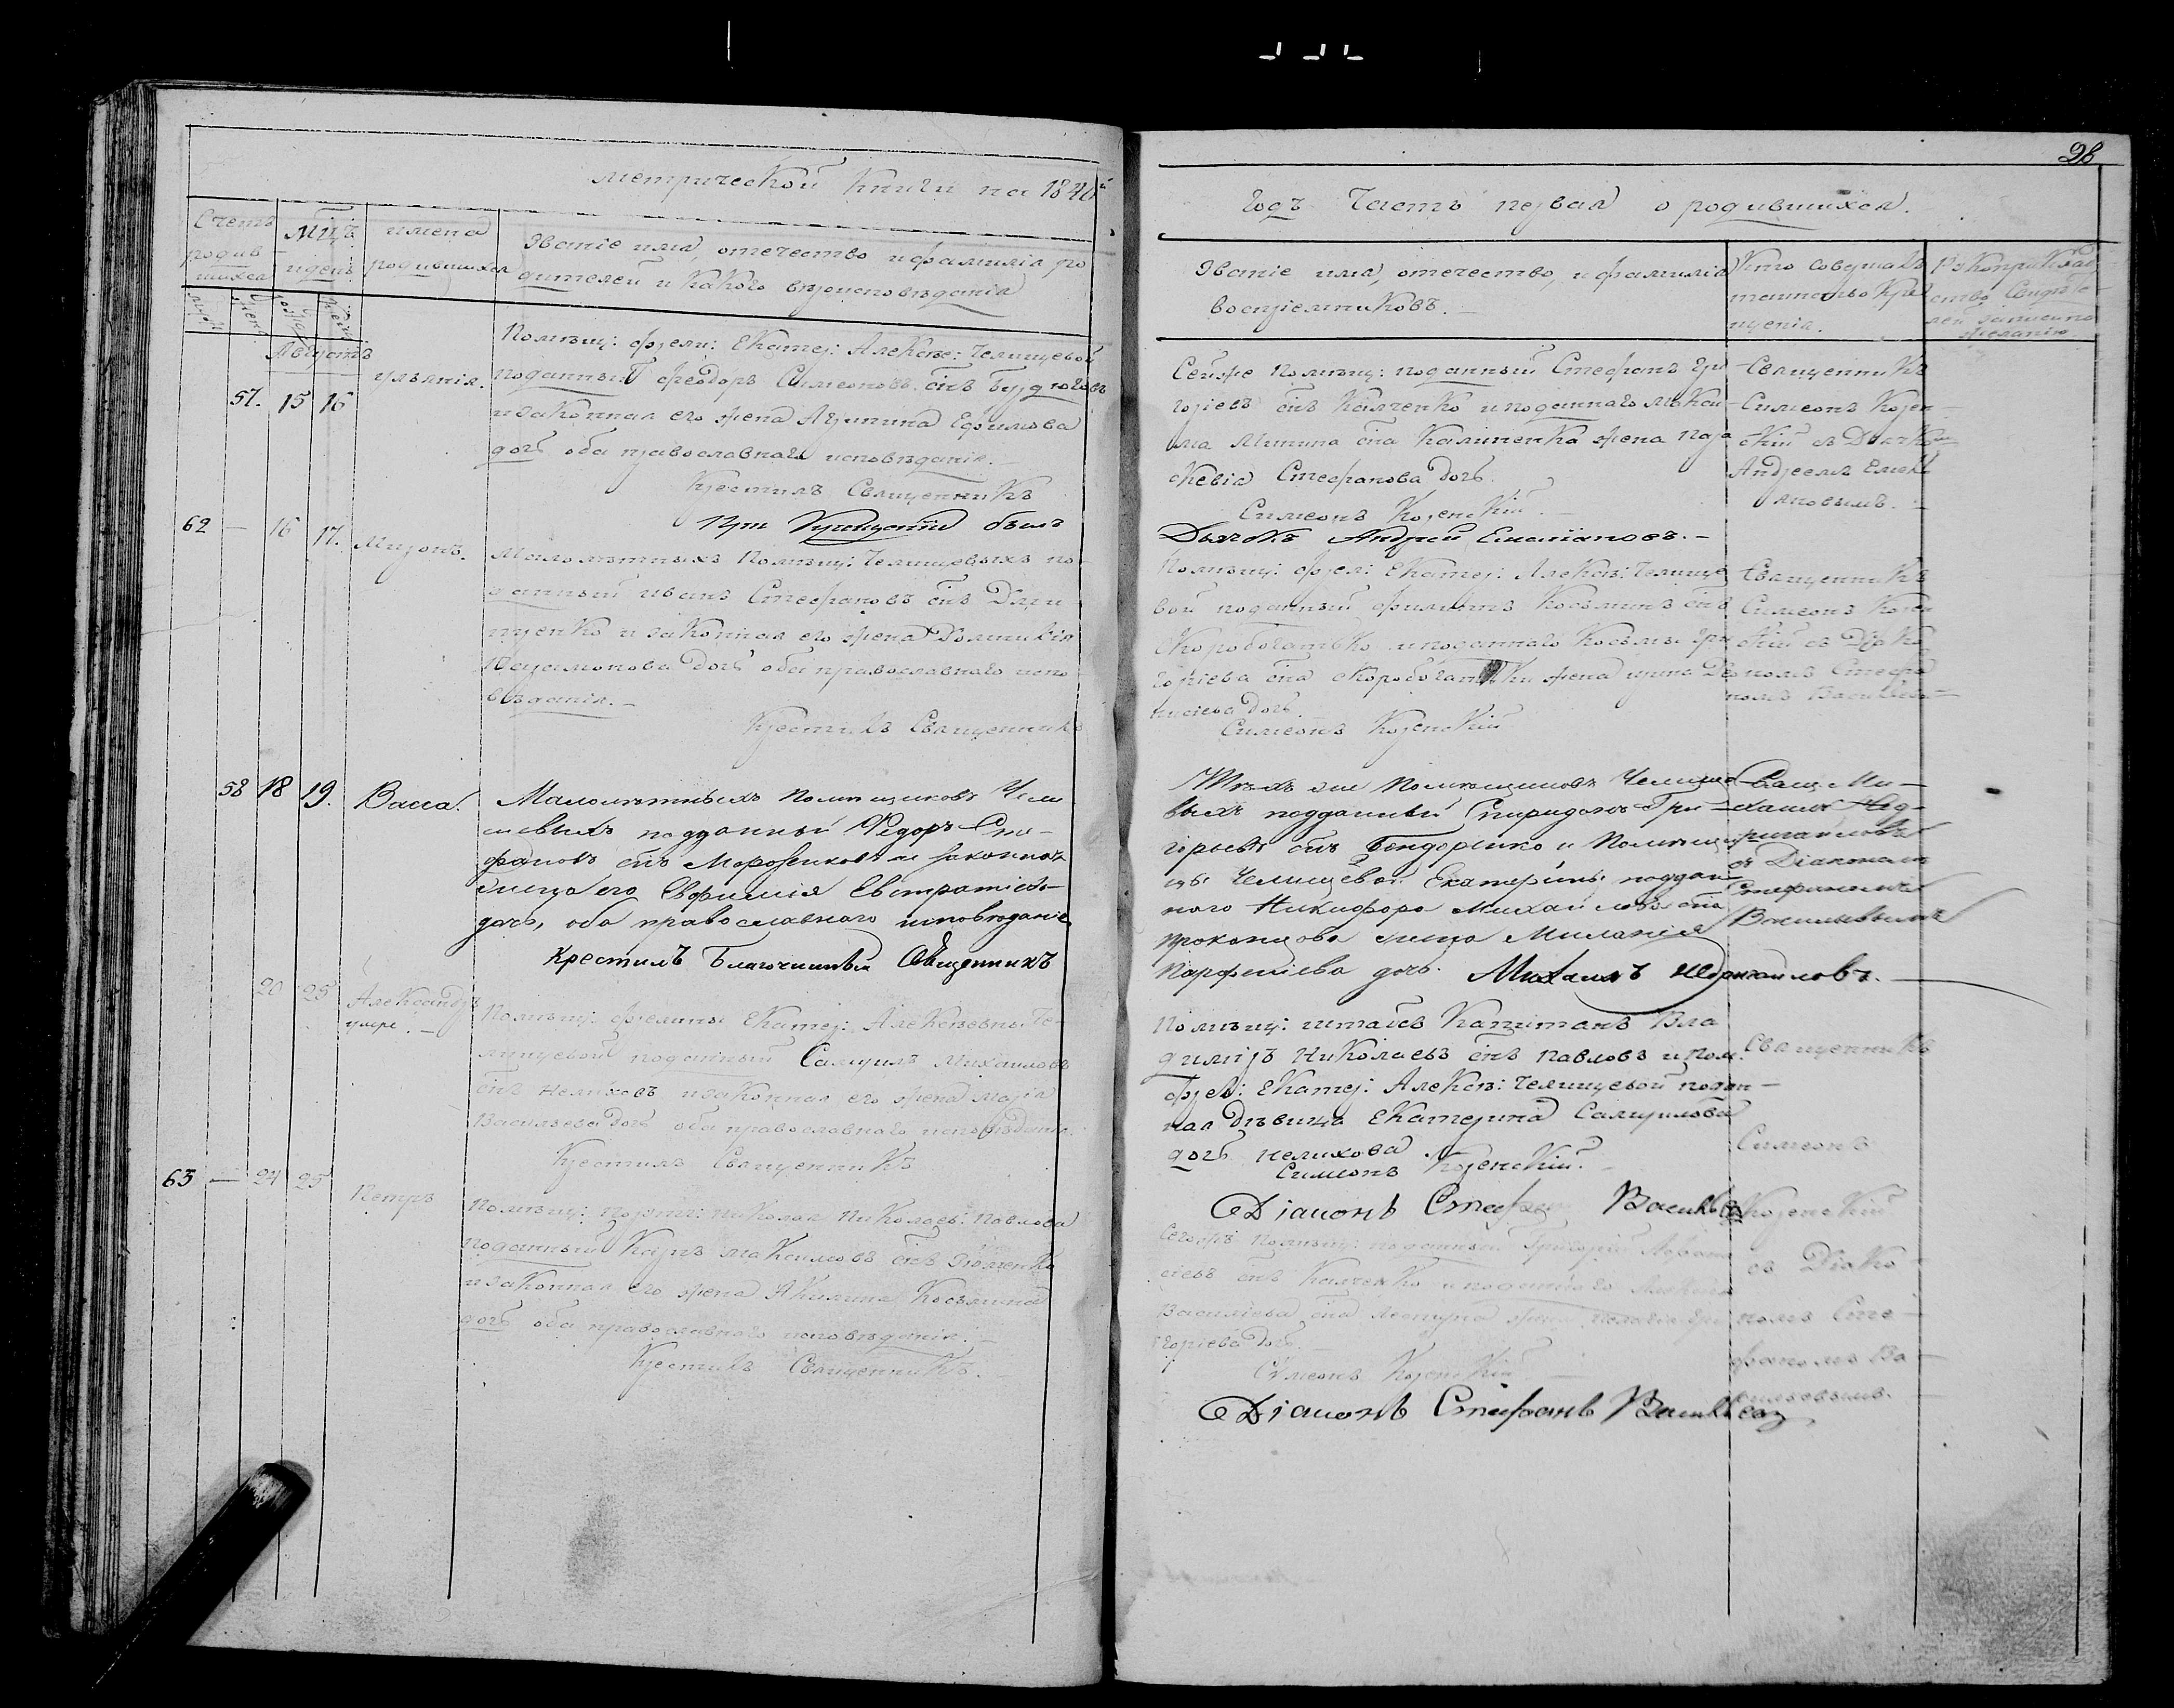 метрической книги на 1840й
Счетъ родив шихся
мцъ и день
имена родившихся
Званіе имя, отечество и фамилія ро
дителей и какого вѣроисповѣданія
Августъ
57. 15 16
Ульянія.
Помѣщ: фрели: Екатер: Алексѣе: Челищевой
поданный Феодоръ Симеоновъ снъ
и законная его жена Агрипина Ефимова
дочь оба православнаго исповѣданія.
Крестилъ Священникъ
При Крещеніи былъ
62 — 16 17. Миронъ.
Малолѣтныхъ Помѣщ: Челищевыхъ по
данный Иванъ Стефановъ снъ
и законная его жена
дочь оба православнаго испо
вѣданія.
Крестилъ Священникъ
58 18 19. Васса.
Малолѣтныхъ помѣщиковъ Чели
щевыхъ подданный Федоръ Сте
фановъ снъ Морозенковъ и законная
жица его Евфимія Евстратіева
дочь, оба православнаго исповѣданія
Крестилъ Благочинный Священникъ
20 25
Александръ
умре.
Помѣщ: фрелины Екатер: Алексѣевны Че
лищевой поданный Самуилъ Михаиловъ
снъ Нелиховъ и законная его жена Марія
Васильева дочь оба православнаго исповѣданія.
Крестилъ Священникъ
63 — 24 25
Петръ
Помѣщ: Николая Николаев: Павлова
поданный Карпъ Максимовъ снъ
и законная его жена Акилина Косьмина
дочь оба православнаго исповѣданія.
Крестилъ Священникъ.
28
Годъ Часть первая о родившихся.
Званіе имя, отечество, и фамилія
воспріемниковъ.
Кто совершалъ
таинство Кре
щенія.
Сейже Помѣщ: поданный Стефанъ Гри
горіевъ снъ Калченко и поданнаго Макси
ма Минина сна Калиненка жена Пара
скевія Стефанова дочь.
Симеонъ Коренскій.
Дьячокъ Андрей Емеліановъ.
Священникъ
Симеонъ Корен
скій съ Дьячком
Андреемъ Емель
яновымъ.
Помѣщ: фрел: Екатер: Алексѣ: Челище
вой поданный Филиппъ Косьминъ снъ
Скоробогатько и поданнаго Косьмы Гри
горіева сна Скоробогатьки жена Ирина Де
нисіева дочь.
Симеонъ Коренскій
Священникъ
Симеонъ Корен
скій съ Діако
номъ Стефа
номъ Василье
Тѣхъ же Помѣщиковъ Челище
выхъ подданный Спиридонъ Гри
горьевъ снъ Бондаренко и Помѣщи
цы Челищевой Екатерины поддан
наго Никифора Михайлова сна
Прокопцова жица Миланія
Парфеніева дочь. Михаилъ
Свящ. Ми
хаилъ
съ Діакономъ
Стефаномъ
Васильевымъ
Помѣщ: штабсъ Капитанъ Вла
димиръ Николаевъ снъ Павловъ и пом:
фрел: Екатер: Алексѣ: Челищевой подан
ная дѣвица Екатерина Самуилова
дочь Нелихова.
Симеонъ Коренскій.
Діаконъ Стефан Васильев
Священникъ
Симеонъ
Коренскій
съ Діако
номъ Сте
фаномъ Ва
сильевымъ.
Сегожъ Помѣщ: поданный Григорій Афана
сіевъ снъ Калченко и поданнаго
Василіева сна жена Гри
горіева дочь.
Симеонъ Коренскій
Діаконъ Стефанъ Васильев